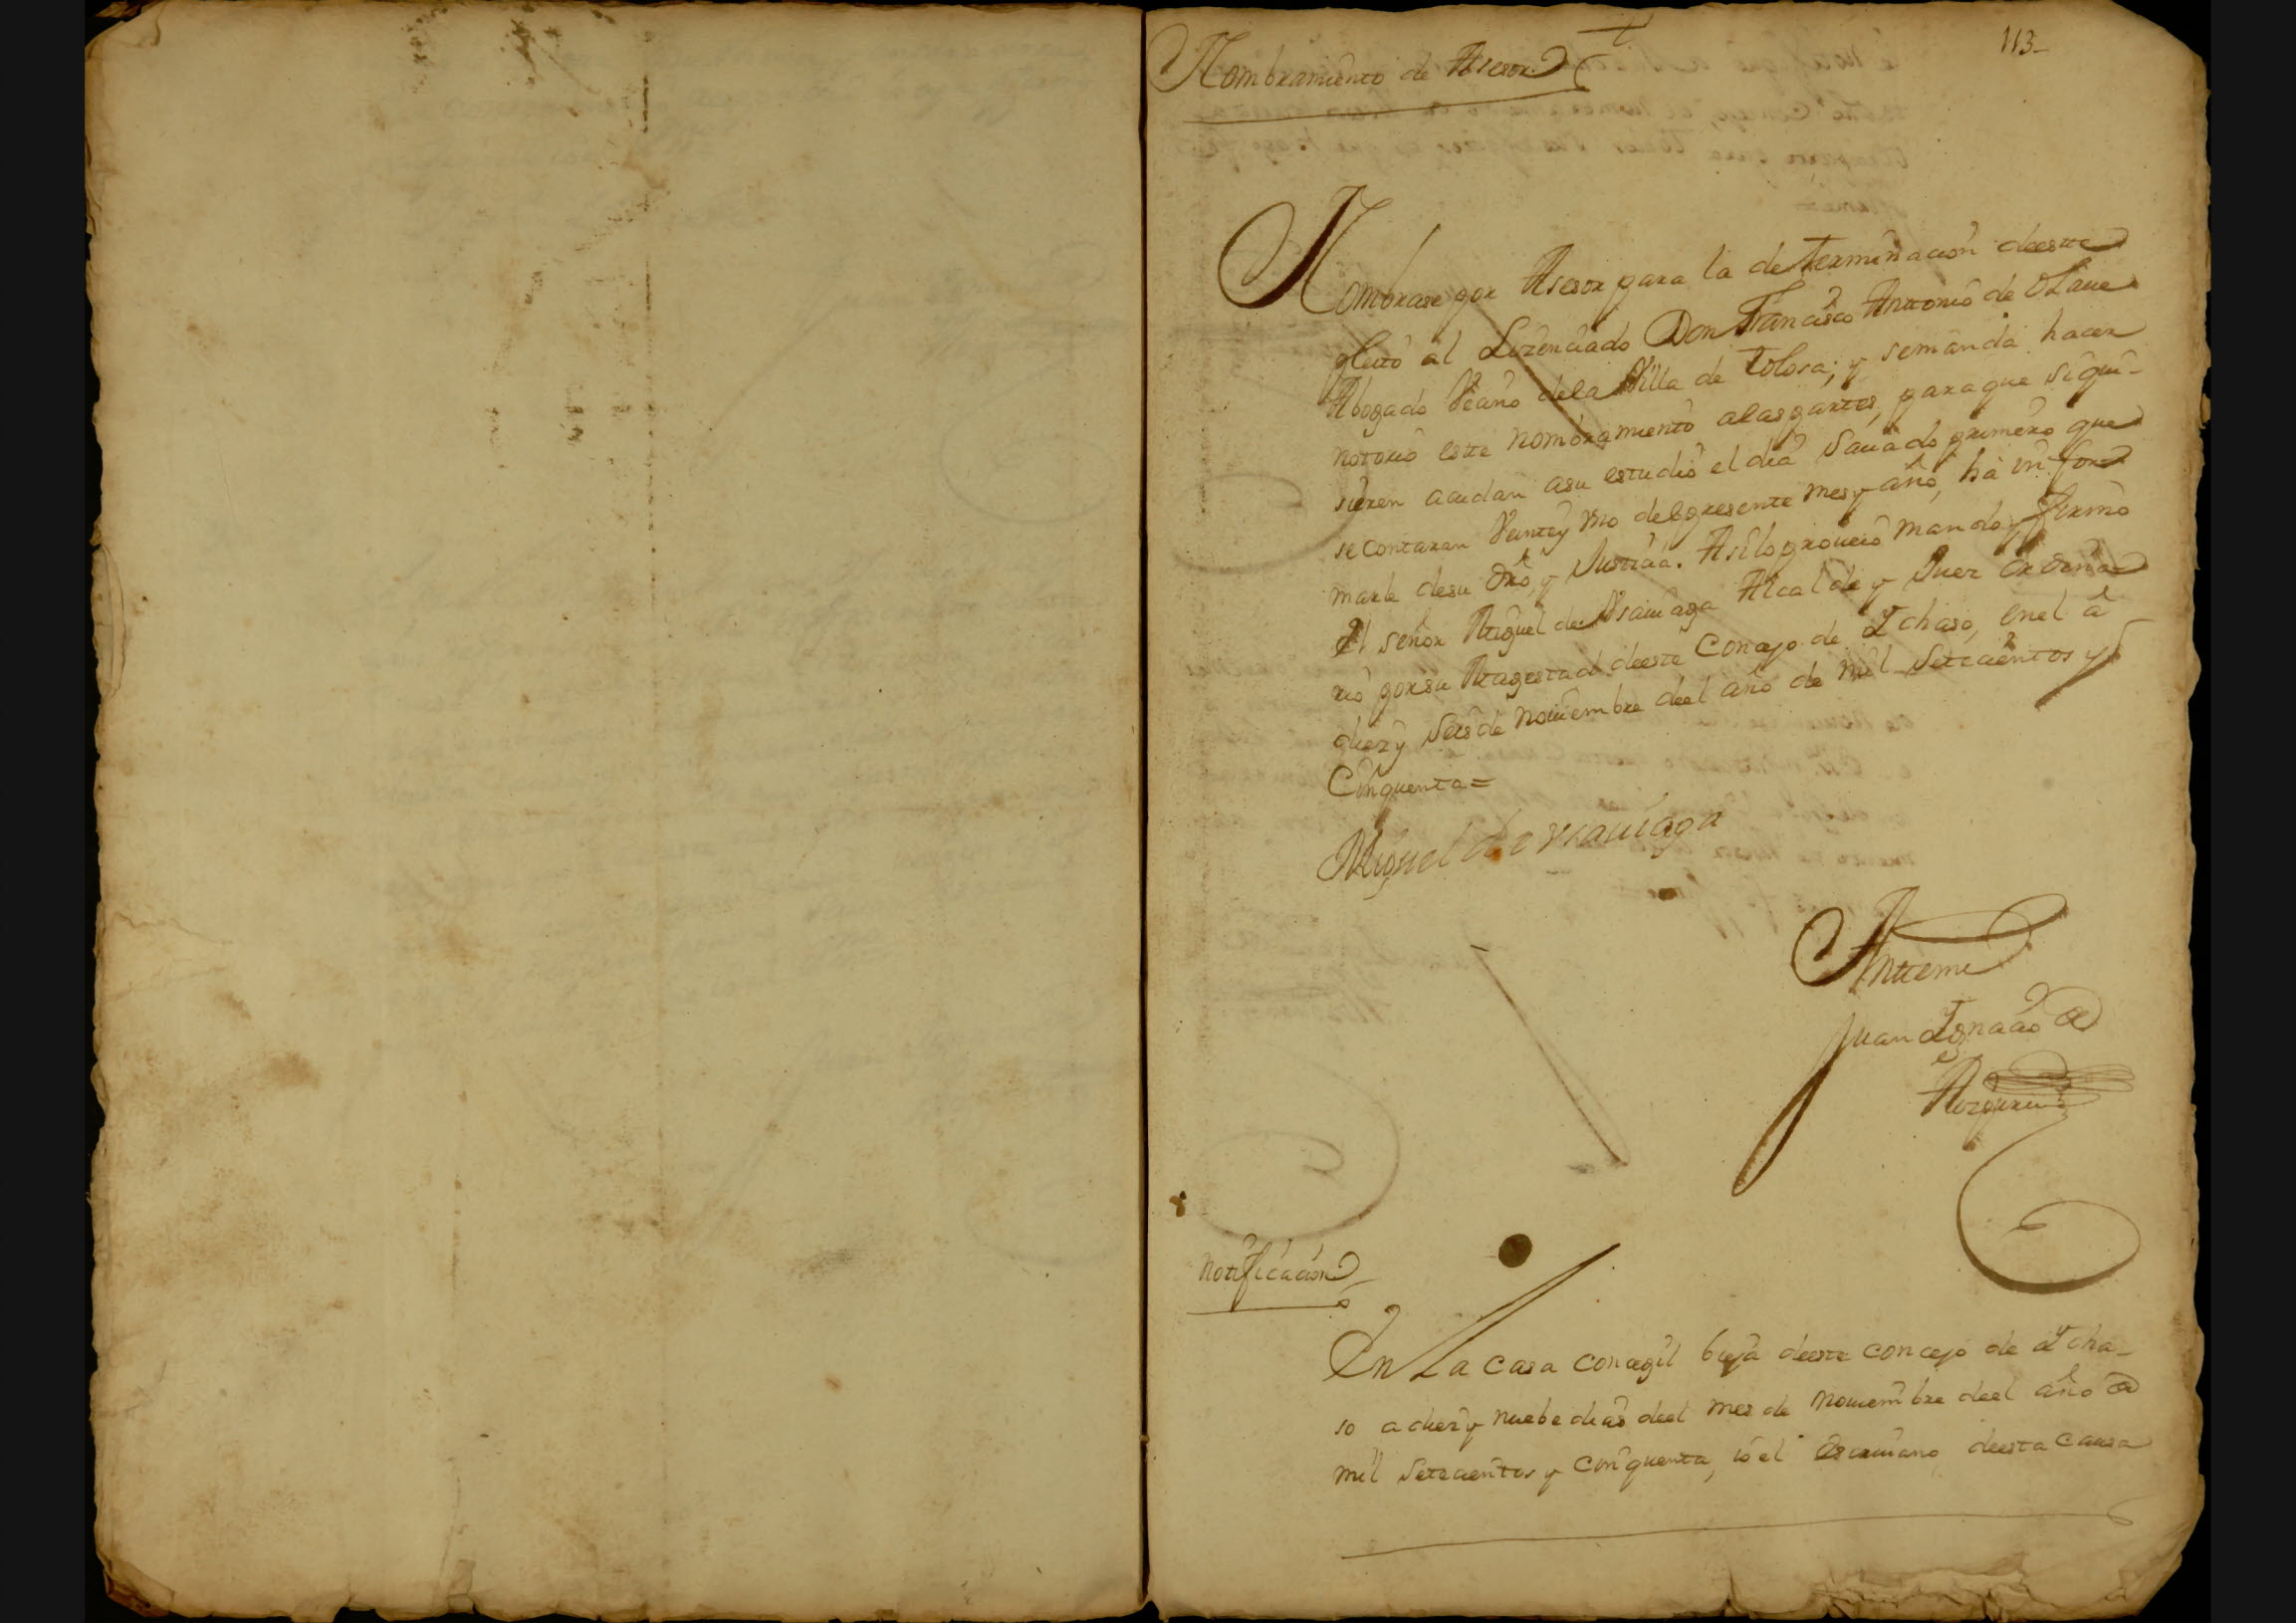 113-
Nombramiento de Asesor
Nombrase por Asesor para la determinacion deeste
pleito al Lizenciado Don Francisco Anttonio de OLaue
Abogado Vecino dela Villa de Tolosa; y semanda hacer
notorio este nombramiento alas partes, para que si qui-
sieren acudan asu estudio el dia Sauado primero que
se contaran Veintey uno delpresente mes y año, ha infor
marle desu dro, y Justicia. Asilo proueio mando, y firmo
El señor Miguel de Vsauiaga Alcalde y Juez ordina
rio por su Magestad deeste Concejo de Ychaso, enel a
diez y seis de nouiembre deel año de mil Setecientos y
Cinquenta=
Miguel de vsauiaga
Antemi
Juan Ygnacio de
Aozpuru
notificacion
En La casa concegil bieja deeste concejo de Ycha-
so a diez y nuebe dias deel mes de nouiembre deel año de
mil setecientos y cinquenta, io el escriuano deesta causa